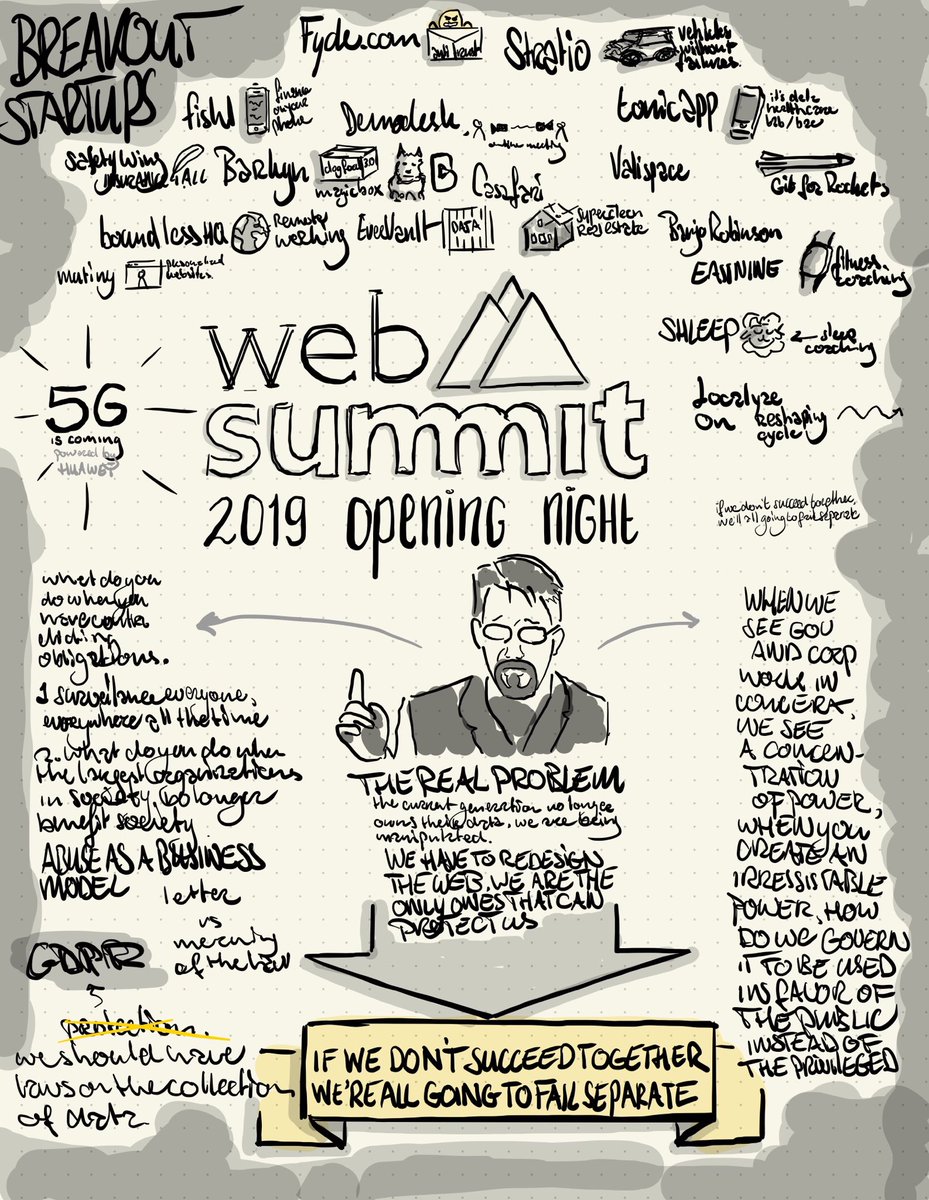 BREAKOUT
STARTUPS
Fyde.com
anti
Stratio
vehicles
without
failures.
fishl
finance
on your
phone
Demodesk
online meeting
tonicapp
it's dela
healthcare
b2b/b2c
Safetywing
INSURANCE 4 ALL
Barkyn
dogfood 3.0
magicbox
B
Casafari
Valispace
Git for Rockets
boundlessHQ
Remote
working
EverVault
DATA
superclean
real estate
Banjo Robinson
mutiny
personalized
websites.
EASNINE
fitness
coaching
SHLEEP
← sleep
coaching
Localyze
On
Reshaping
cycle
5G
is coming
powered by
HUAWEI
web
summit
2019 opening night
if we don't succeed together,
we'll all going to fail separate
what do you
do when you
have contra
dicting
obligations.
1 surveilance everyone,
everywhere all the time
2. what do you do when
the largest organizations
in society no longer
benefit society
ABUSE AS A BUSINESS
MODEL
letter
vs
meaning
of the law
GDPR
protection.
we should have
laws on the collection
of data
THE REAL PROBLEM
the current generation no longer
owns their data, we are being
manipulated.
WE HAVE TO REDESIGN
THE WEB. WE ARE THE
ONLY ONES THAT CAN
PROTECT US
WHEN WE
SEE GOV
AND CORP
WORK IN
CONCERT,
WE SEE
A CONCEN-
TRATION
OF POWER,
WHEN YOU
CREATE AN
IRRESISTABLE
POWER, HOW
DO WE GOVERN
IT TO BE USED
IN FAVOR OF
THE PUBLIC
INSTEAD OF
THE PRIVILEGED
IF WE DON'T SUCCEED TOGETHER
WE'RE ALL GOING TO FAIL SEPARATE